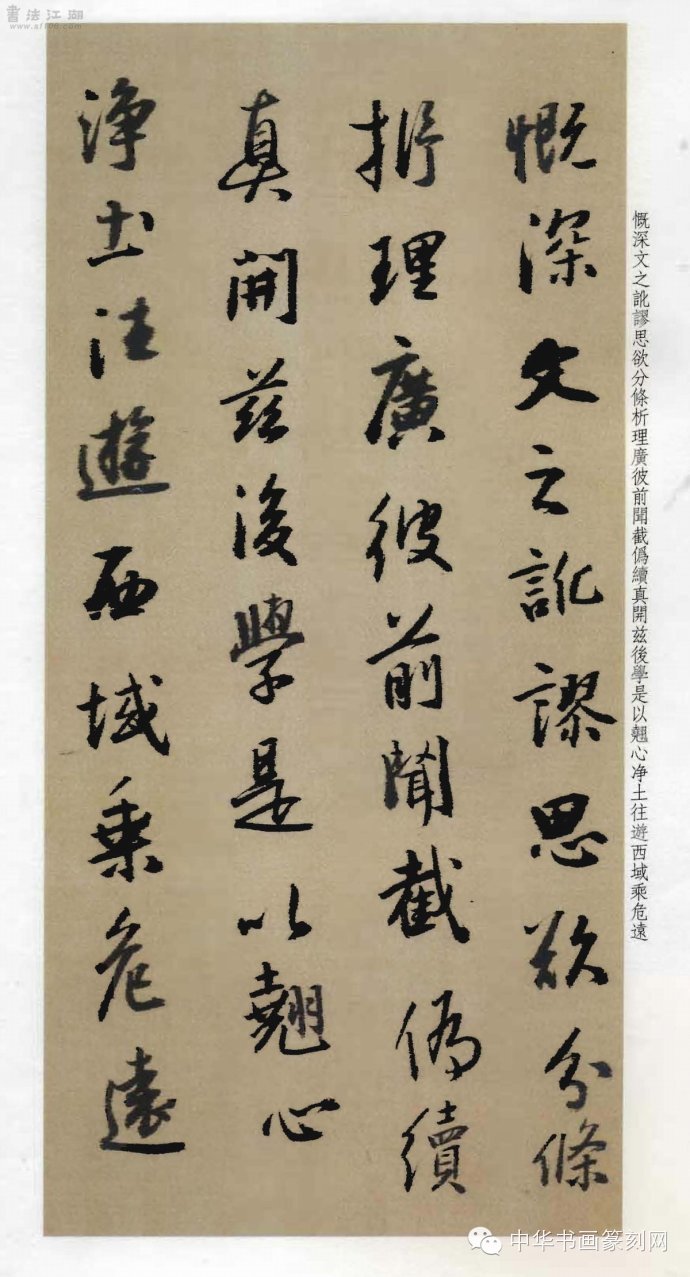 書法江湖
www.sf108.com
慨深文之訛謬思欲分條
析理廣彼前聞截偽續
真開茲後學是以翹心
淨土往遊西域乘危遠
慨深文之訛謬思欲分條析理廣彼前聞截僞續真開兹後學是以翹心净土往遊西域乘危遠
中华书画篆刻网